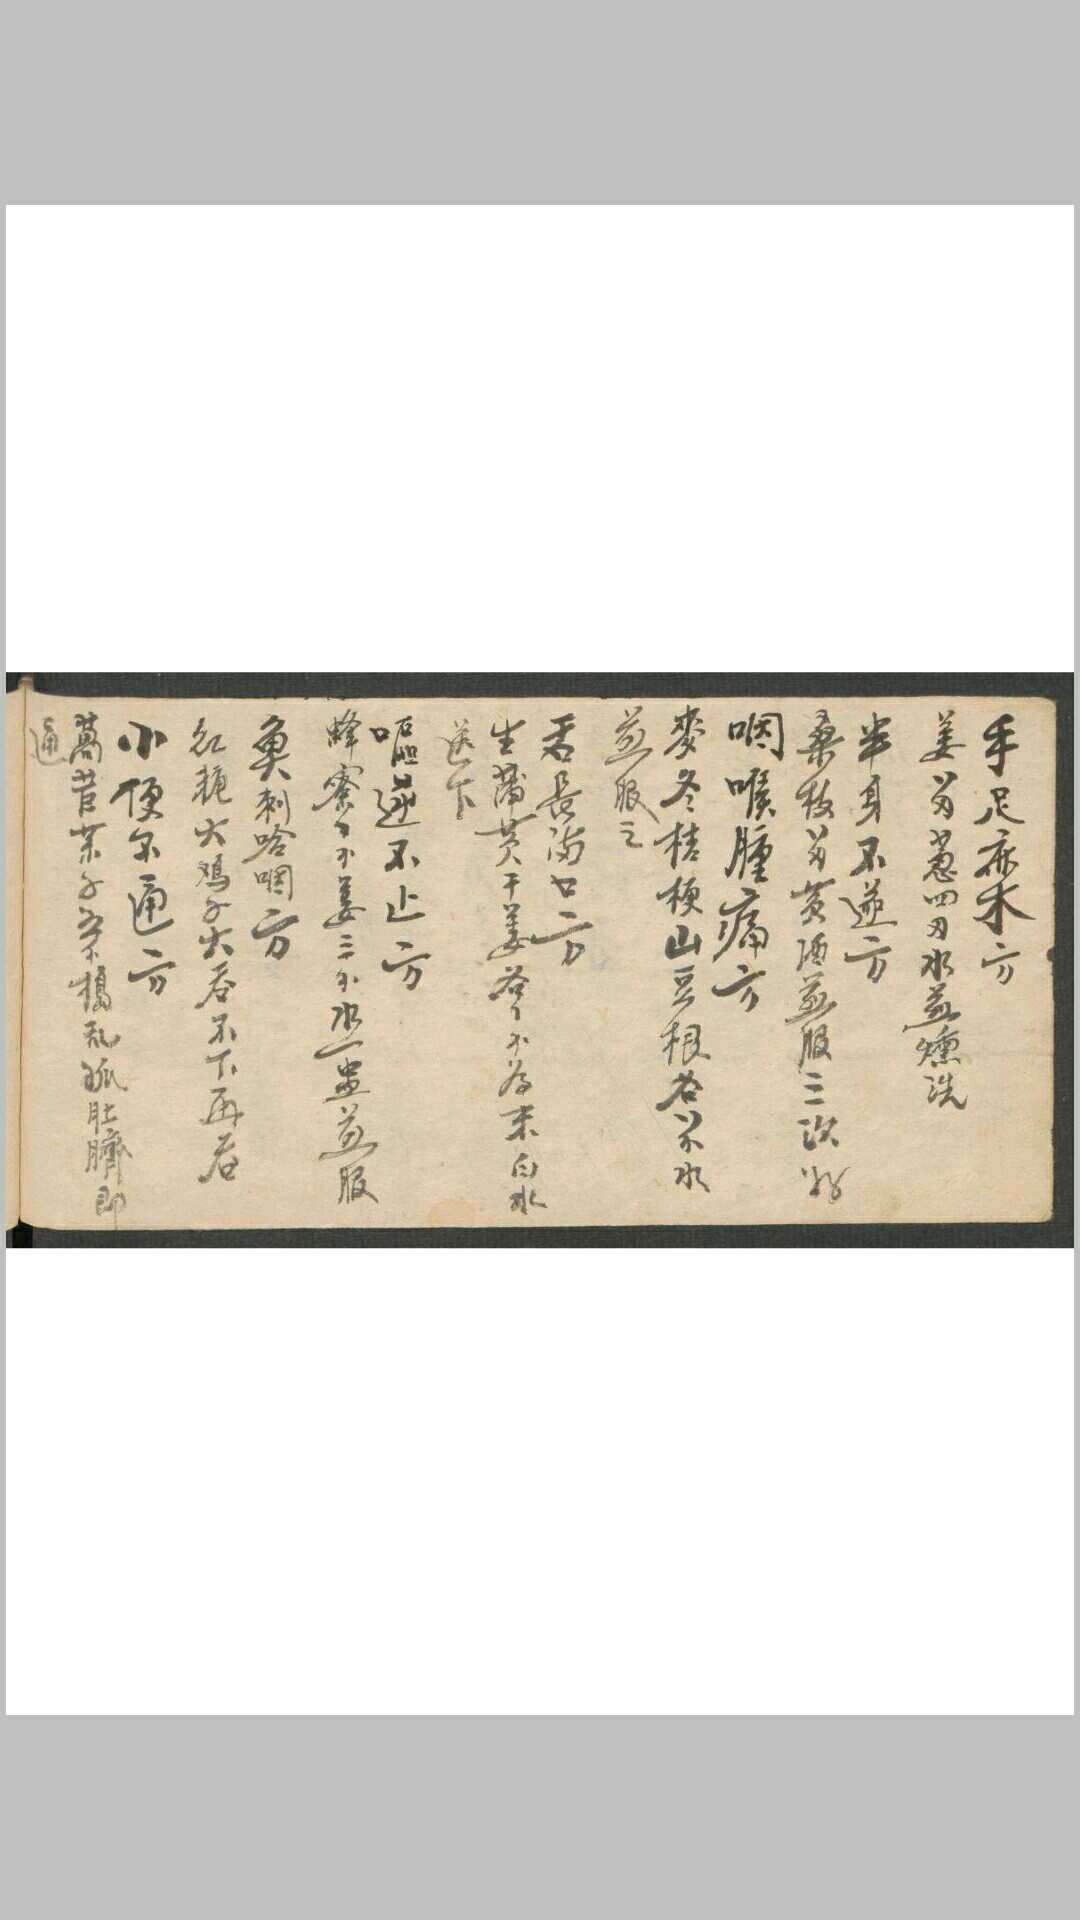 手足麻木方
姜 葱四 水煎燻洗
半身不遂方
桑枝 黃酒煎服三次
咽喉腫痛方
麥冬桔梗山豆根各 水
煎服之
舌長滿口方
生蒲黃干姜各 為末白水
送下
嘔逆不止方
蜂 姜三 水一 煎服
魚刺哈咽方
紅 大鸡子大吞不下再吞
小便不通方
萵苣菜子 搗 肚臍即
通